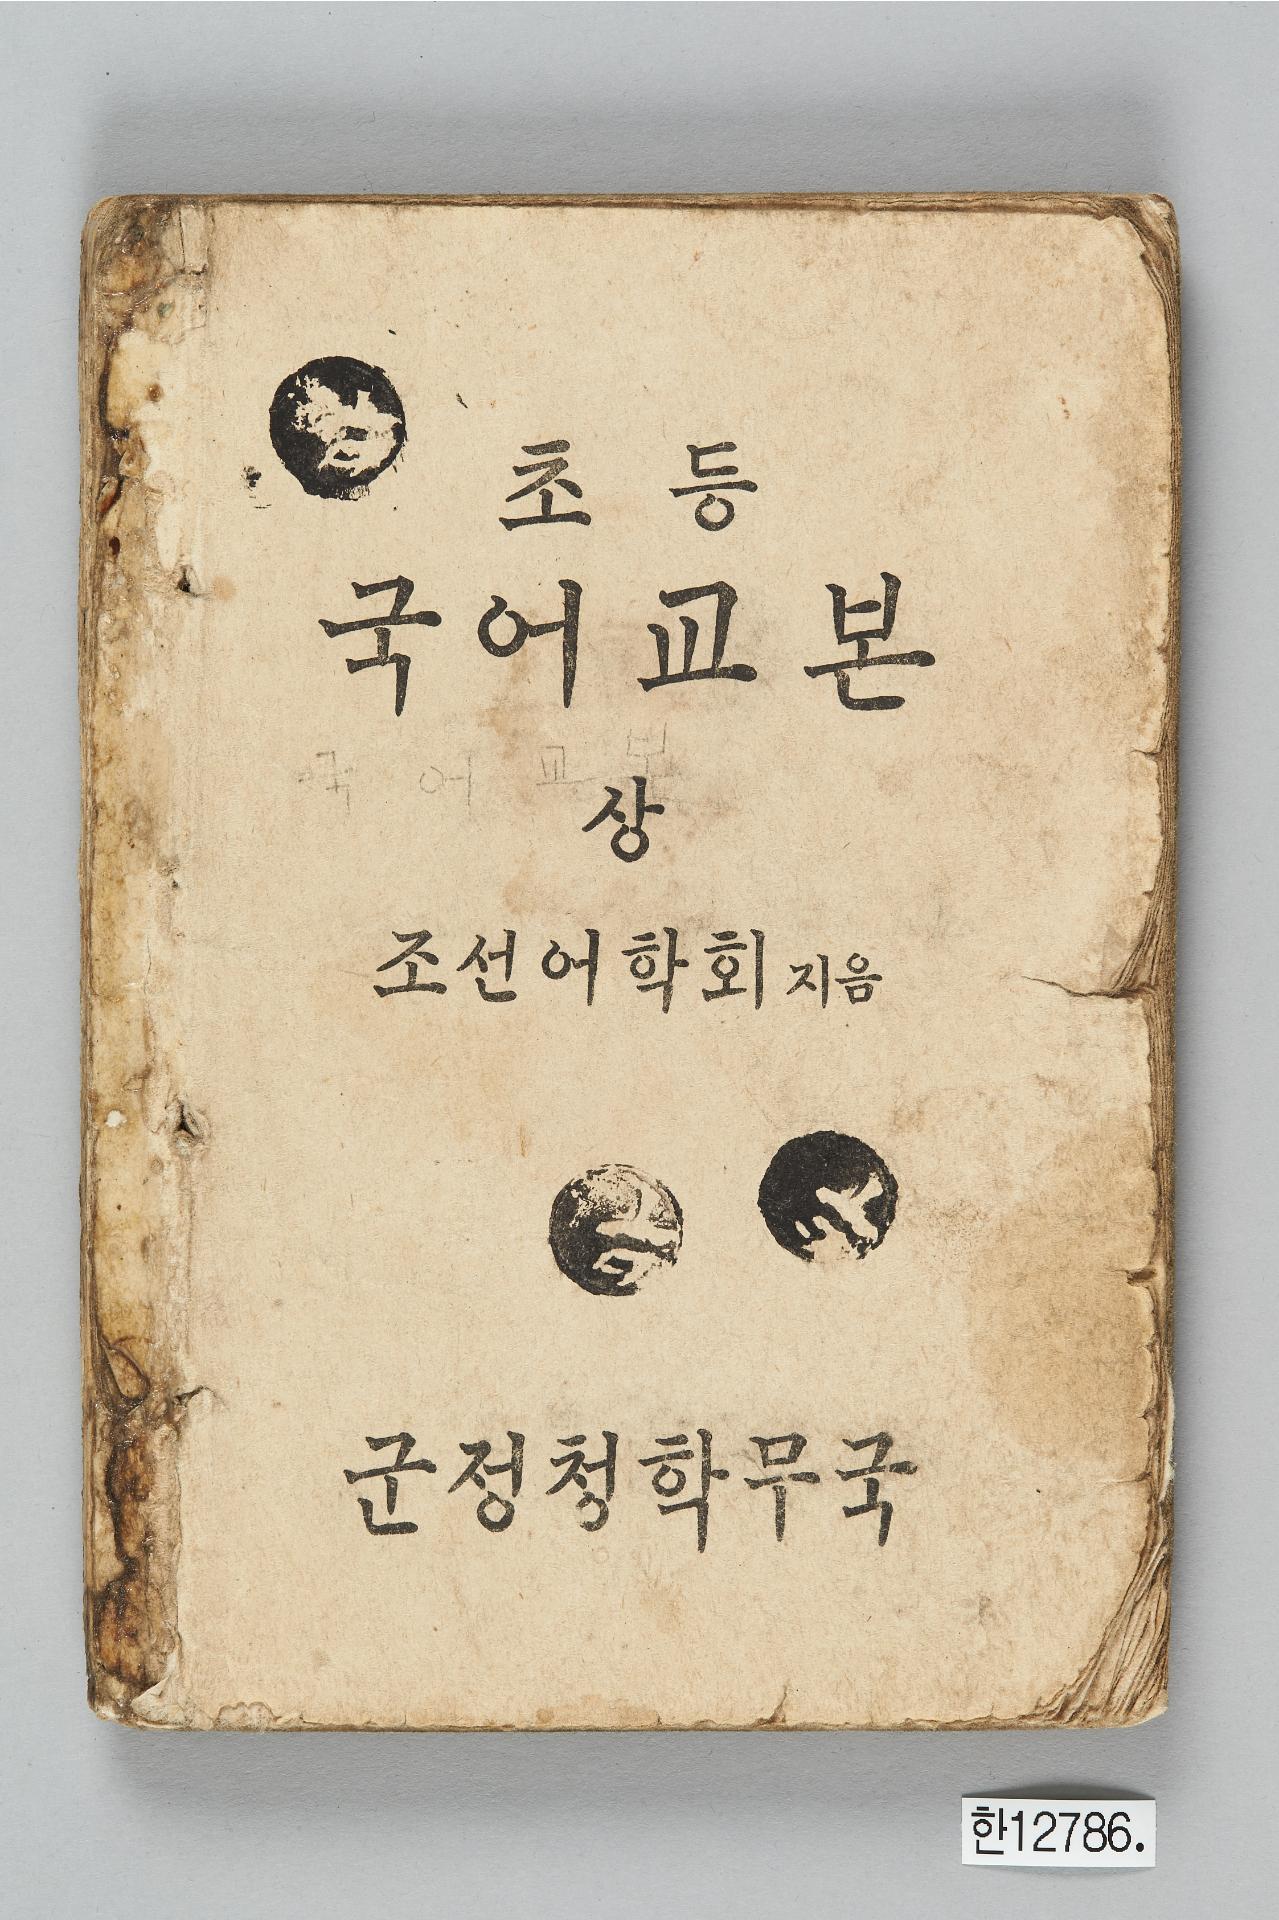 초등
국어교본
국어교본
상
조선어학회 지음
군정청학무국
한12786.